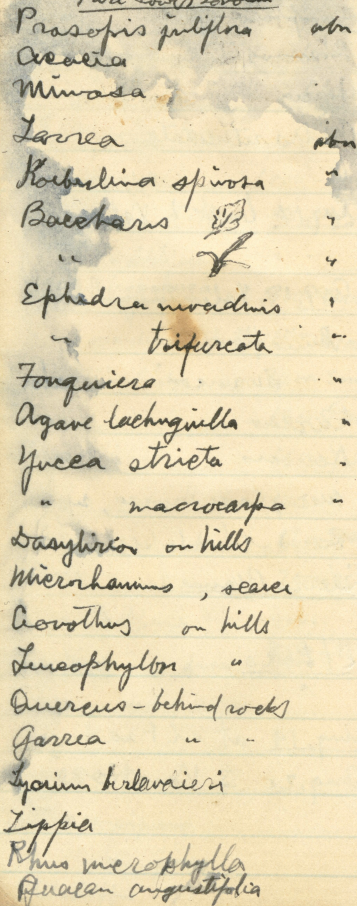 Prosopis juliflora abn
Acacia
Mimosa
Larrea abn
Koeberlinia spinosa "
Baccharis "
" "
Ephedra nevadensis "
" trifurcata "
Fouquiera "
Agave lachuguilla "
Yucca stricta "
" macrocarpa "
Dasylirion on hills
Microrhamnus, scarce
Ceanothus on hills
Leucophyllon "
Quercus - behind rocks
Garrea " "
Lycium berlandieri
Lippia
Rhus microphylla
angustifolia